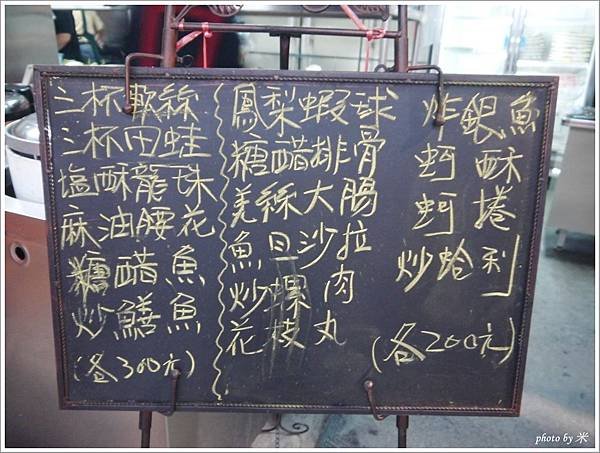 三杯軟絲
三杯田蛙
塩酥龍珠
麻油腰花
糖醋魚
炒鱔魚
(各300元)
鳳梨蝦球
糖醋排骨
羌絲大腸
魚旦沙拉
炒螺肉
花枝丸
炸銀魚
蚵酥
蚵捲
炒蛤利
(各200元)
photo by 米